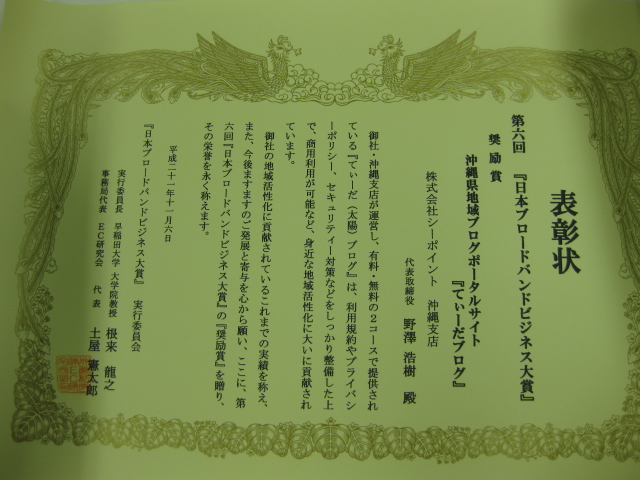 表彰状
第六回 『日本ブロードバンドビジネス大賞』
奨励賞
沖縄県地域ブログポータルサイト
『てぃーだブログ』
株式会社シーポイント 沖縄支店
代表取締役 野澤 浩樹 殿
御社・沖縄支店が運営し、有料・無料の2コースで提供され
ている『てぃーだ(太陽)ブログ』は、利用規約やプライバシ
ーポリシー、セキュリティー対策などをしっかり整備した上
で、商用利用が可能など、身近な地域活性化に大いに貢献され
ています。
御社の地域活性化に貢献されているこれまでの実績を称え、
また、今後ますますのご発展と寄与を心から願い、ここに、第
六回『日本ブロードバンドビジネス大賞』の『奨励賞』を贈り、
その栄誉を永く称えます。
平成二十一年十一月六日
『日本ブロードバンドビジネス大賞』 実行委員会
実行委員長 早稲田大学 大学院教授 根来 龍之
事務局代表 EC研究会 代表 土屋 憲太郎